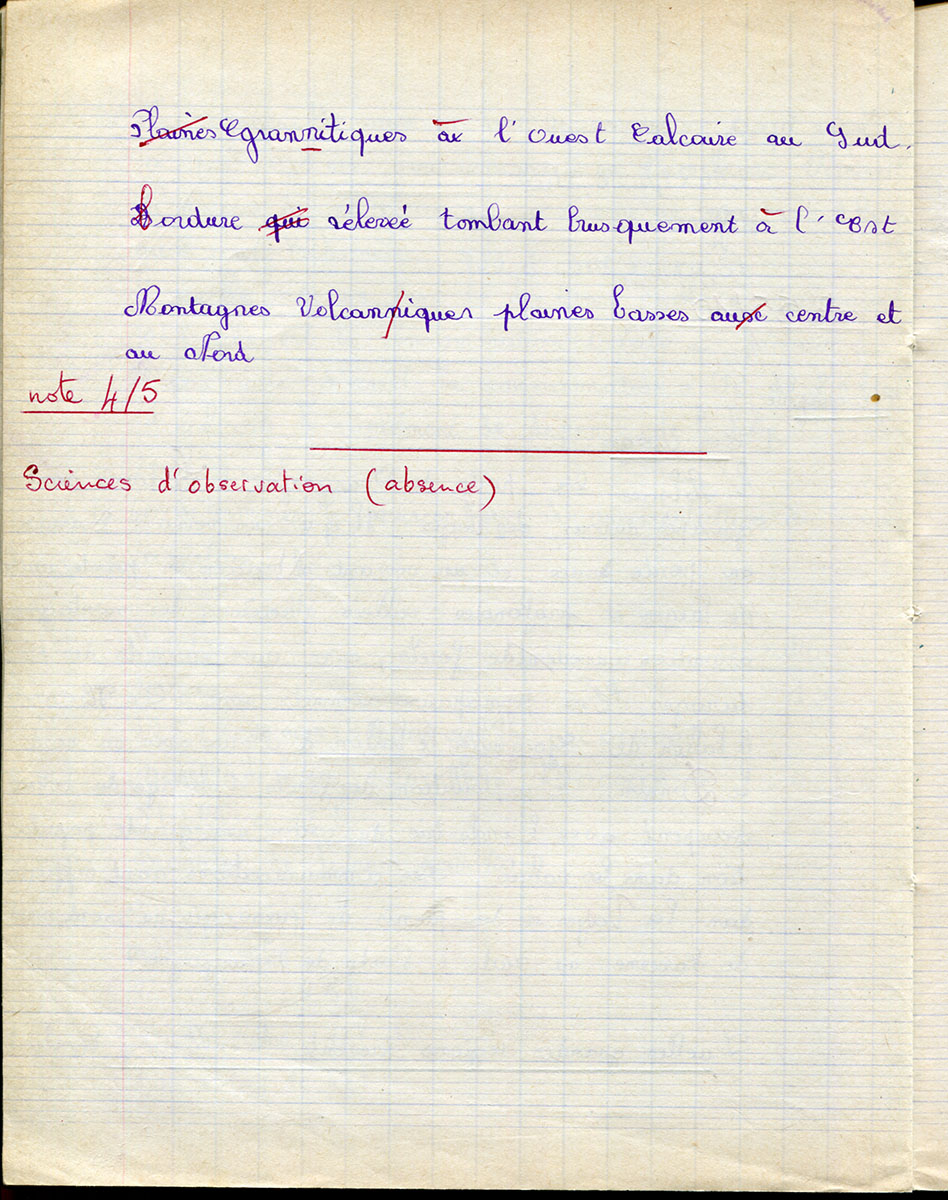 Plaines grannitiques à l'Ouest Calcaire au Sud.
Bordure qui rélevée tombant brusquement à l'Est
Montagnes Volcanniques plaines basses aux centre et
au Nord
note 4/5
Sciences d'observation (absence)